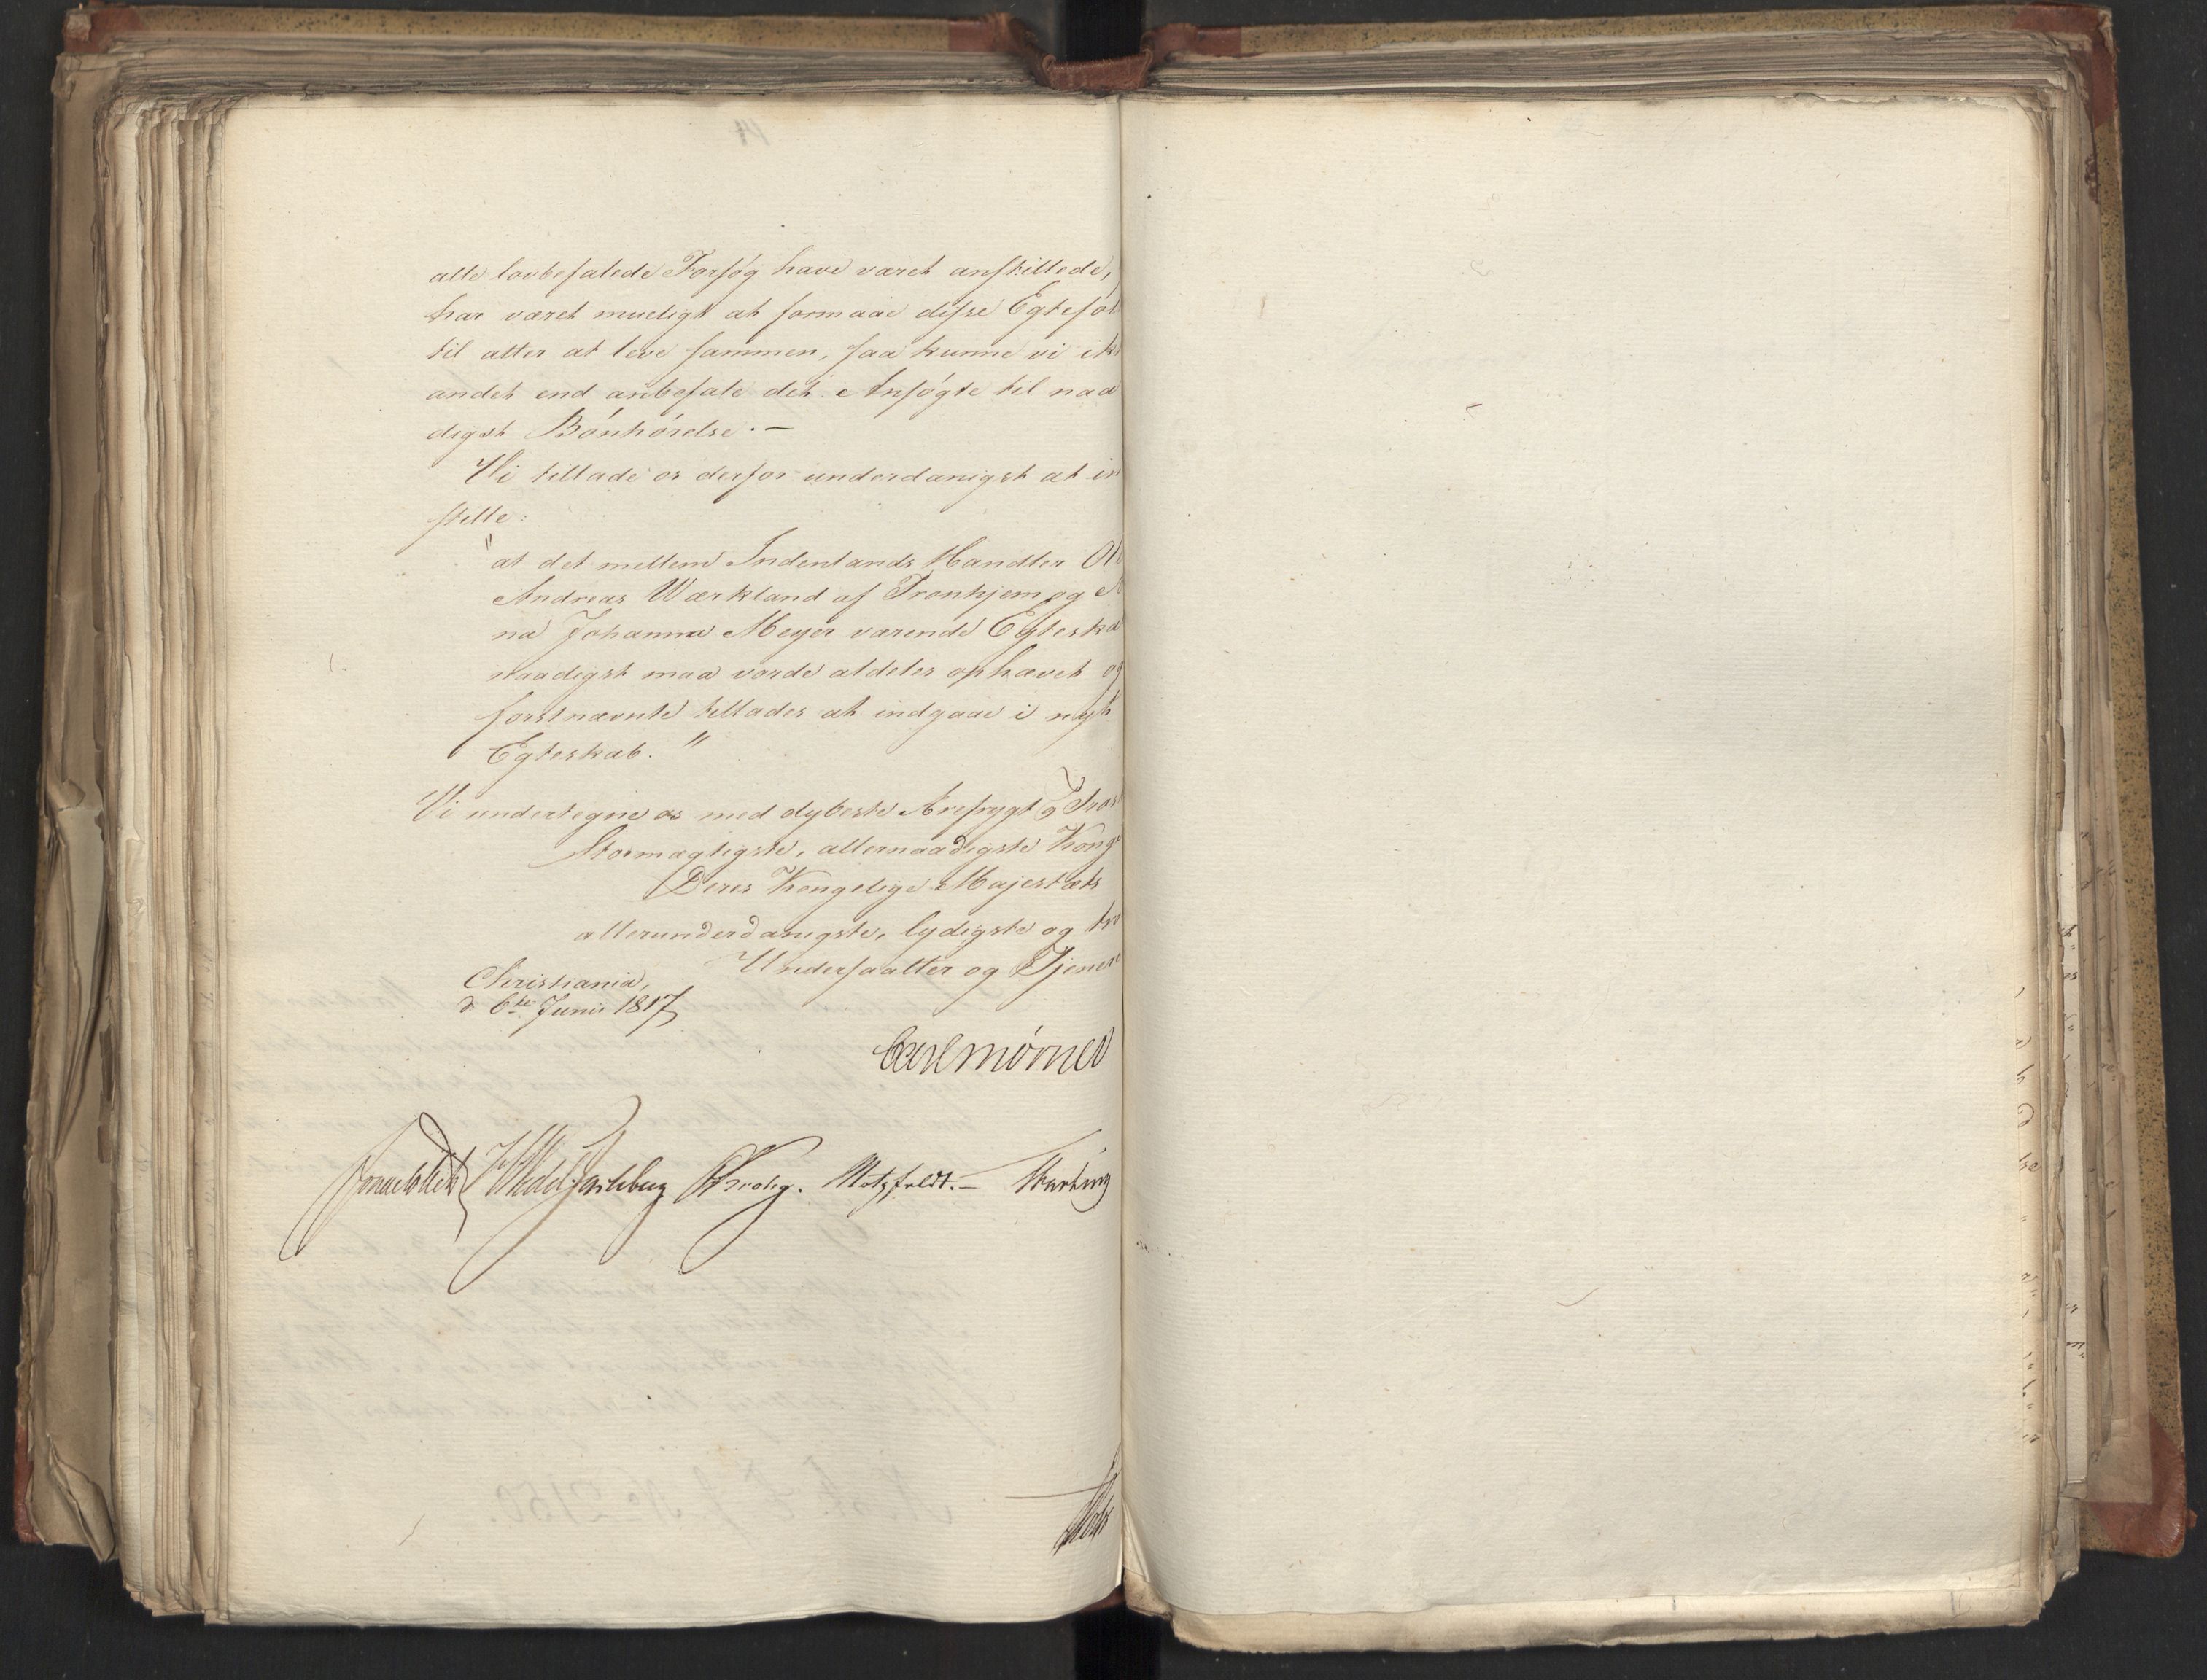 alle lovbefalede Forsøg have været anstillede,
har været mueligt at formaae disse Egtefol
til atter at leve sammen, saa kunne vi ik
andet end anbefale det Ansøgte til naa
digst Bónhórelse. —
Vi tillade os derfor underdanigst at in
stille:
"at det mellem Indenlands Handler Ole
Andreas Wærkland af Tronhjem og
na Johanna Meyer værende Egteska
naadigst maa vorde aldeles ophævet og
førstnævnte tillades at indgaae i nyt
Egteskab."
Vi undertegne os med dybeste Ærefrygt og
Stormægtigste, allernaadigste Konge
Deres Kongelige Majestæts
allerunderdanigste, lydigste og tro
Undersaatter og Tjenere
Christiania,
d. 6te Junii 1817
Carl Mörner
Wedel Jarlsberg Krohg. Motzfeldt. —